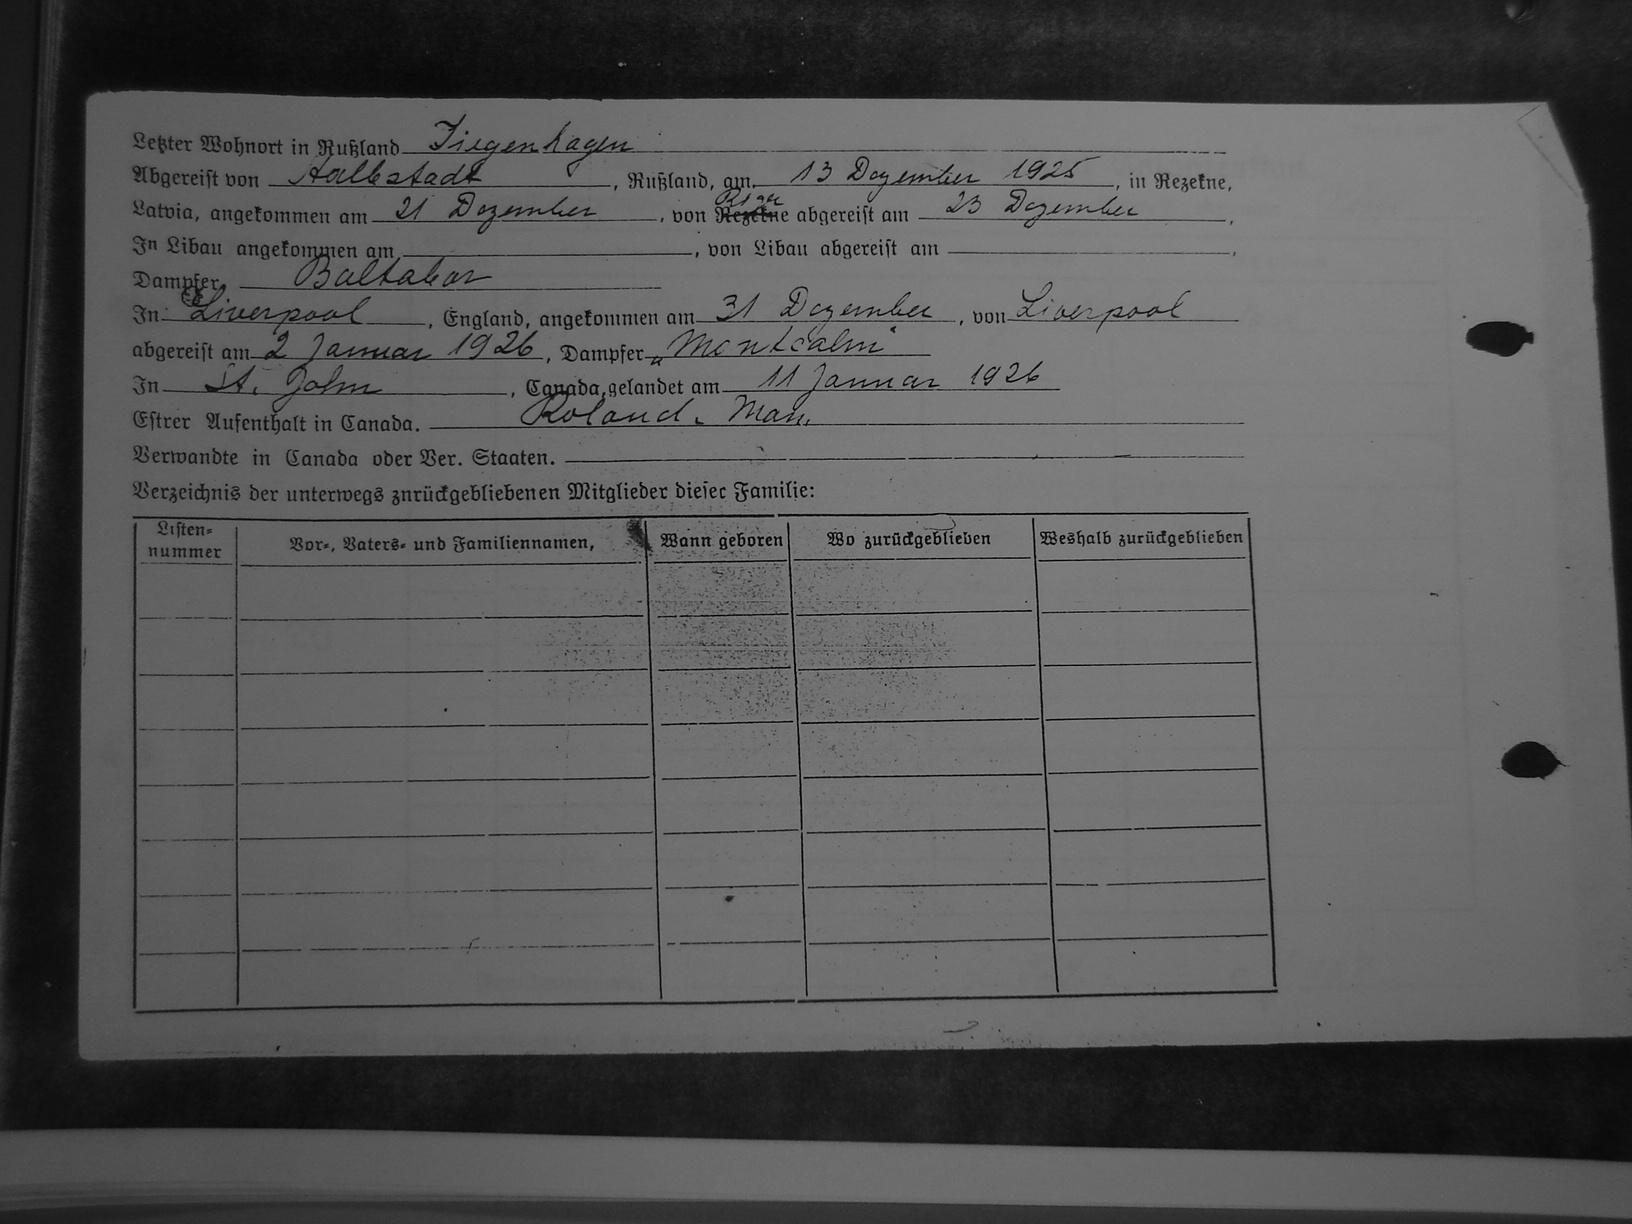 Letzter Wohnort in Rußland Tiegenhagen
Abgereist von Halbstadt, Rußland, am 13 Dezember 1925, in Rezekne,
Latvia, angekommen am 21 Dezember, von Riga Rezekne abgereist am 23 Dezember,
In Libau angekommen am, von Libau abgereist am,
Dampfer Baltabor
In Liverpool, England, angekommen am 31 Dezember, von Liverpool
abgereist am 2 Januar 1926, Dampfer „Montcalm"
In St. John, Canada, gelandet am 11 Januar 1926
Estrer Aufenthalt in Canada. Roland, Man.
Verwandte in Canada oder Ver. Staaten.
Verzeichnis der unterwegs znrückgebliebenen Mitglieder diesec Familie:
Listen-nummer Vor-, Vaters- und Familiennamen, Wann geboren Wo zurückgeblieben Weshalb zurückgeblieben